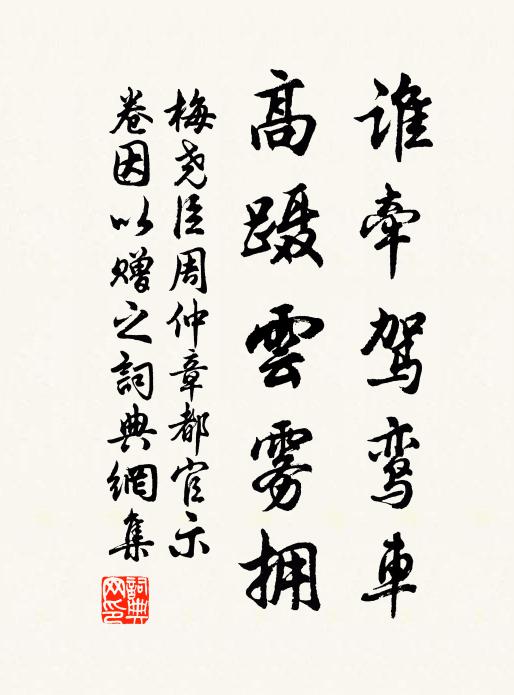 谁牵驾鸾車
高蹑雲雾拥
梅尧臣周仲章都官示
卷因以赠之詞典網集
詞典网印